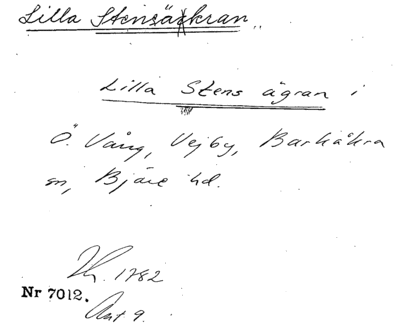 Lilla Stensäkran
Lilla Stens ägran i
Ö. Vång, Vejby, Barkåkra
sn, Bjäre hd.
1782
Nr 7012.
Akt 9.